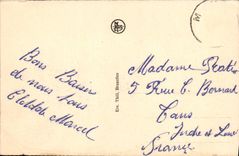 Bons Baisers
de nous tous
Clotilde Marcel
Ern. Thill, Bruxelles
Madame
5 Rue C. Bernard
Tours
Indre et Loire
France